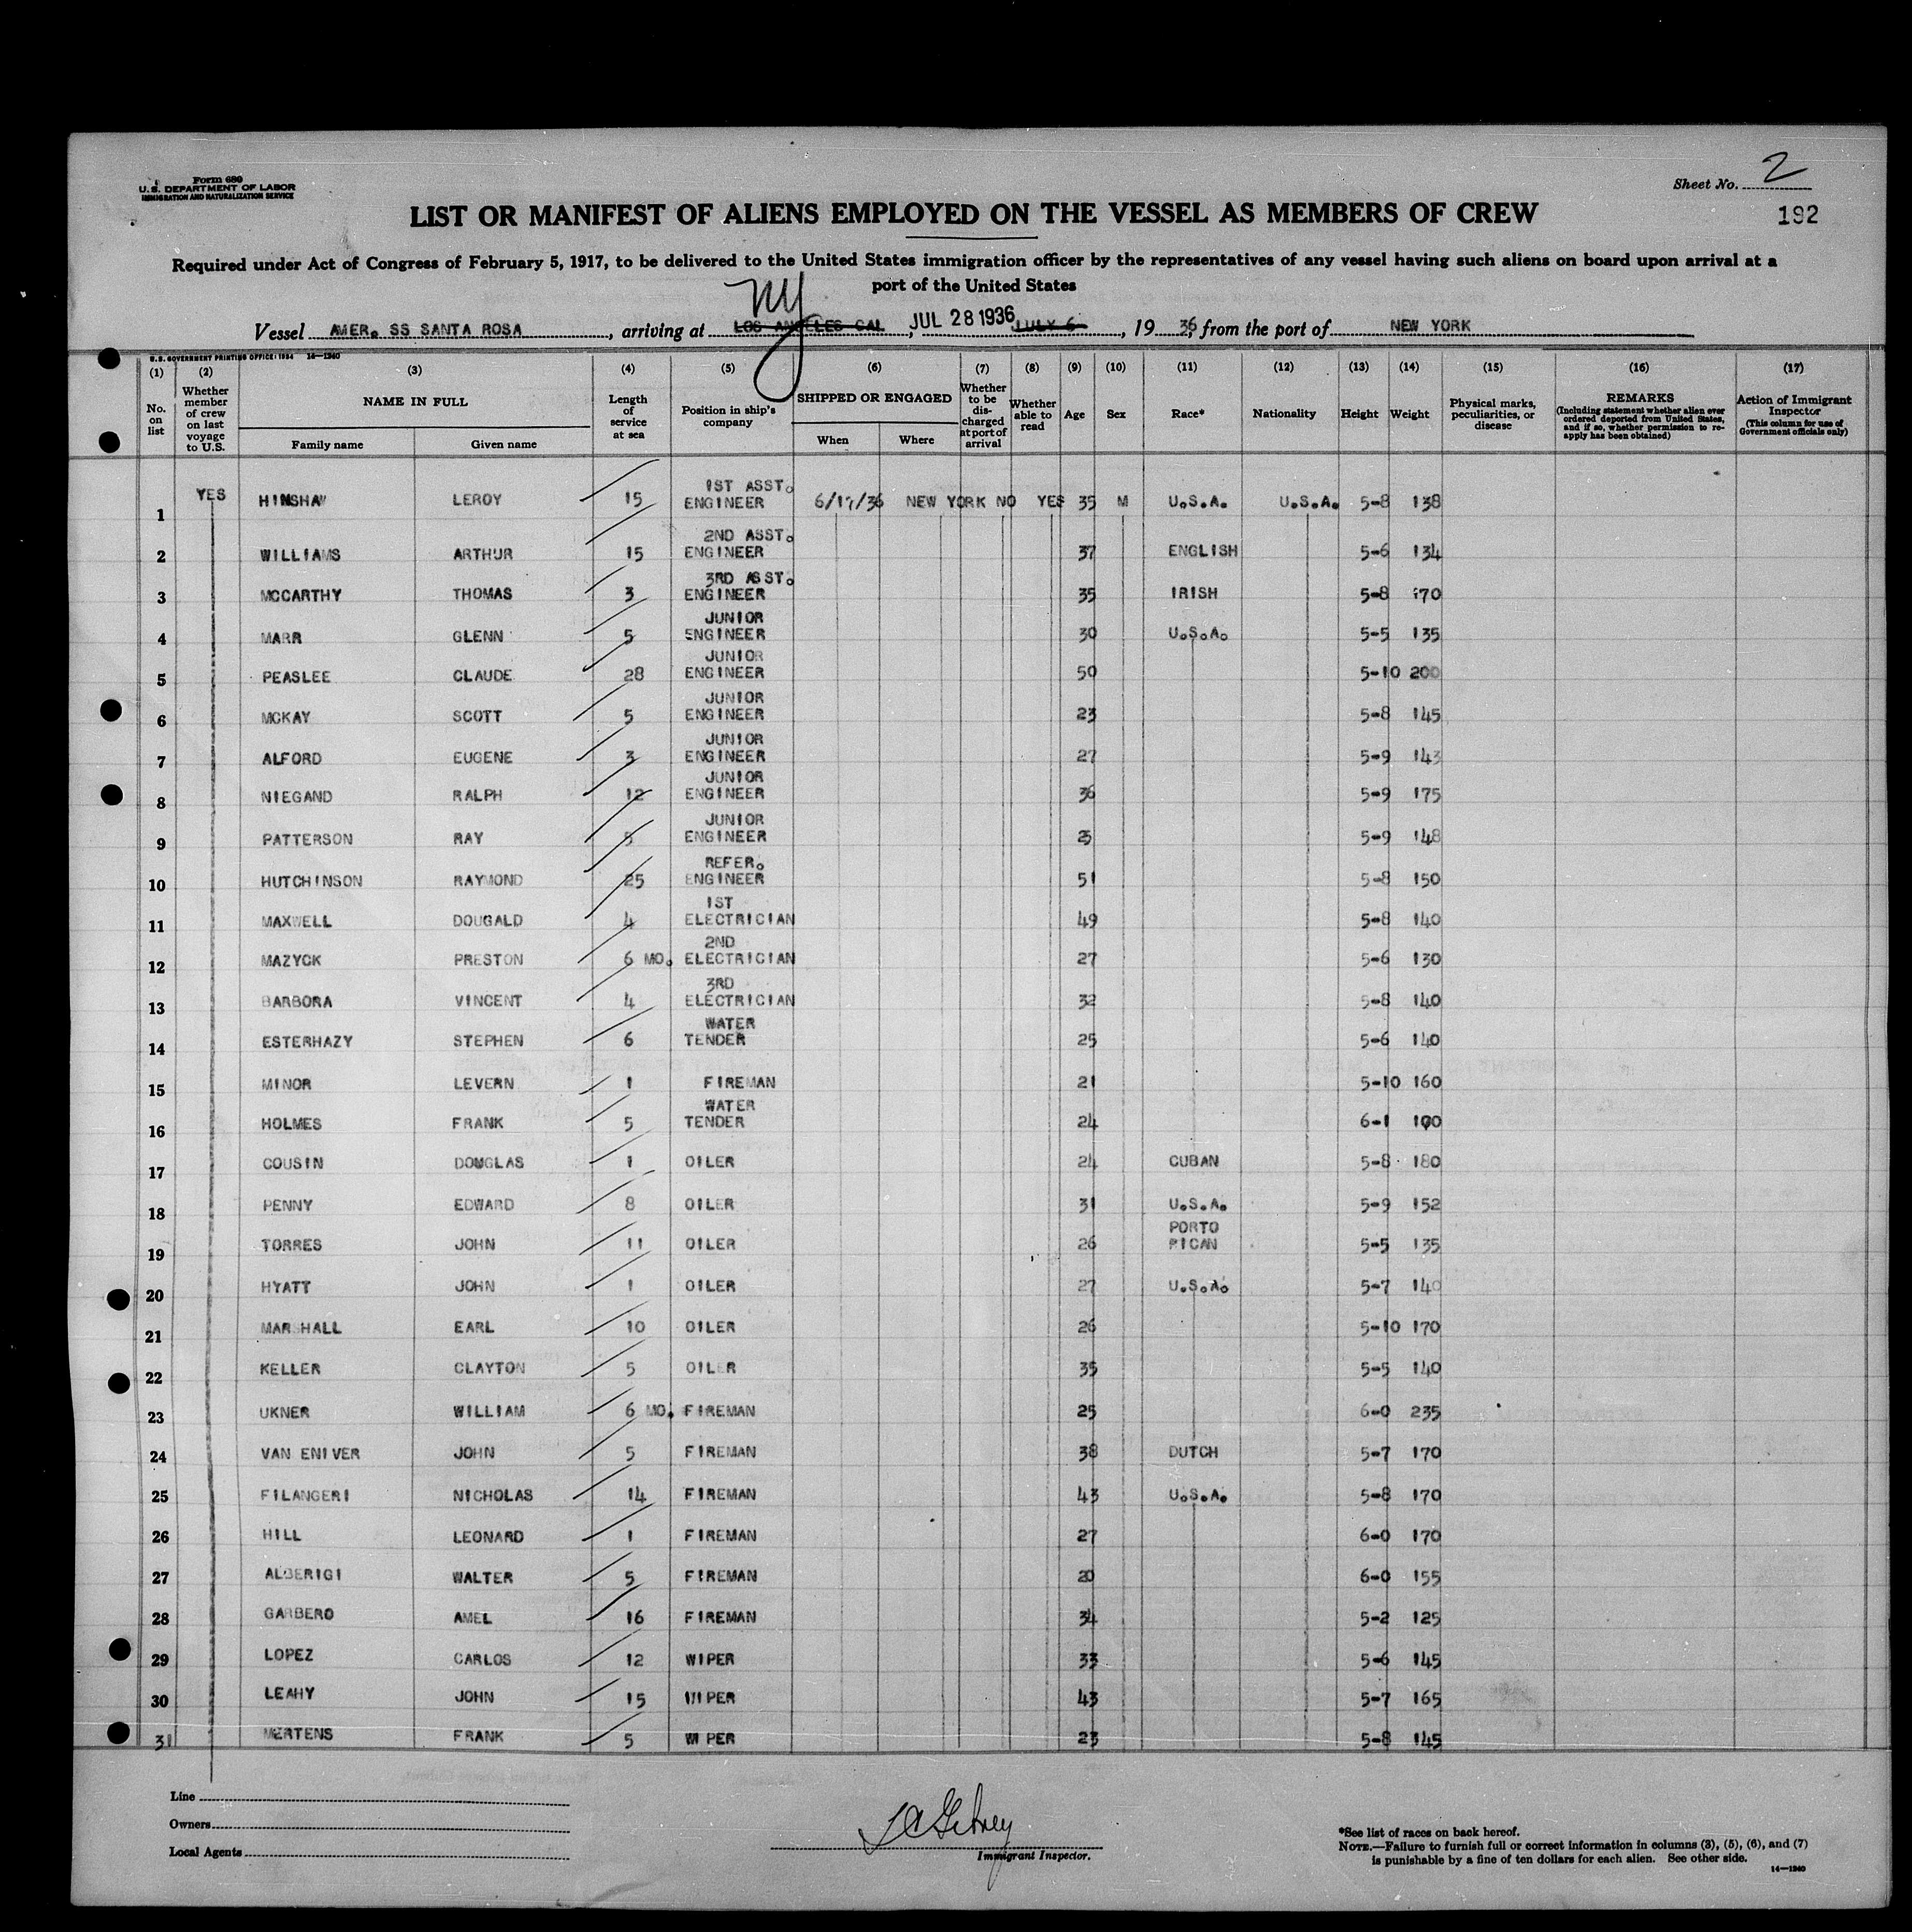 Form 680
U.S. DEPARTMENT OF LABOR
IMMIGRATION AND NATURALIZATION SERVICE
Sheet No. 2
192
LIST OR MANIFEST OF ALIENS EMPLOYED ON THE VESSEL AS MEMBERS OF CREW
Required under Act of Congress of February 5, 1917, to be delivered to the United States immigration officer by the representatives of any vessel having such aliens on board upon arrival at a
port of the United States
NY
Vessel AMER. SS SANTA ROSA, arriving at LOS ANGELES CAL, JUL 28 1936 JULY 6, 19 36, from the port of NEW YORK
U.S. GOVERNMENT PRINTING OFFICE: 1934 14—1240
(1) (2) (3) (4) (5) (6) (7) (8) (9) (10) (11) (12) (13) (14) (15) (16) (17)
No. on list
Whether member of crew on last voyage to U.S.
NAME IN FULL
Family name
Given name
Length of service at sea
Position in ship's company
SHIPPED OR ENGAGED
When
Where
Whether to be discharged at port of arrival
Whether able to read
Age
Sex
Race*
Nationality
Height
Weight
Physical marks, peculiarities, or disease
REMARKS
(Including statement whether alien ever ordered deported from United States, and if so, whether permission to reapply has been obtained)
Action of Immigrant Inspector
(This column for use of Government officials only)
1 YES HINSHAW LEROY 15 1ST ASST. ENGINEER 6/17/36 NEW YORK NO YES 35 M U.S.A. U.S.A. 5-8 138
2 WILLIAMS ARTHUR 15 2ND ASST. ENGINEER 37 ENGLISH 5-6 134
3 MCCARTHY THOMAS 3 3RD ASST. ENGINEER 35 IRISH 5-8 170
4 MARR GLENN 5 JUNIOR ENGINEER 30 U.S.A. 5-5 135
5 PEASLEE CLAUDE 28 JUNIOR ENGINEER 50 5-10 200
6 MCKAY SCOTT 5 JUNIOR ENGINEER 23 5-8 145
7 ALFORD EUGENE 3 JUNIOR ENGINEER 27 5-9 143
8 NIEGAND RALPH 12 JUNIOR ENGINEER 36 5-9 175
9 PATTERSON RAY 5 JUNIOR ENGINEER 25 5-9 148
10 HUTCHINSON RAYMOND 25 REFER. ENGINEER 51 5-8 150
11 MAXWELL DOUGALD 4 1ST ELECTRICIAN 49 5-8 140
12 MAZYCK PRESTON 6 MO. 2ND ELECTRICIAN 27 5-6 130
13 BARBORA VINCENT 4 3RD ELECTRICIAN 32 5-8 140
14 ESTERHAZY STEPHEN 6 WATER TENDER 25 5-6 140
15 MINOR LEVERN 1 FIREMAN 21 5-10 160
16 HOLMES FRANK 5 WATER TENDER 24 6-1 190
17 COUSIN DOUGLAS 1 OILER 24 CUBAN 5-8 180
18 PENNY EDWARD 8 OILER 31 U.S.A. 5-9 152
19 TORRES JOHN 11 OILER 26 PORTO RICAN 5-5 135
20 HYATT JOHN 1 OILER 27 U.S.A. 5-7 140
21 MARSHALL EARL 10 OILER 26 5-10 170
22 KELLER CLAYTON 5 OILER 35 5-5 140
23 UKNER WILLIAM 6 MO. FIREMAN 25 6-0 235
24 VAN ENIVER JOHN 5 FIREMAN 38 DUTCH 5-7 170
25 FILANGERI NICHOLAS 14 FIREMAN 43 U.S.A. 5-8 170
26 HILL LEONARD 1 FIREMAN 27 6-0 170
27 ALBERIGI WALTER 5 FIREMAN 20 6-0 155
28 GARBERO AMEL 16 FIREMAN 34 5-2 125
29 LOPEZ CARLOS 12 WIPER 33 5-6 145
30 LEAHY JOHN 15 WIPER 43 5-7 165
31 MERTENS FRANK 5 WIPER 23 5-8 145
Line
Owners
Local Agents
Immigrant Inspector.
*See list of races on back hereof.
NOTE.—Failure to furnish full or correct information in columns (3), (5), (6), and (7)
is punishable by a fine of ten dollars for each alien. See other side.
14—1240